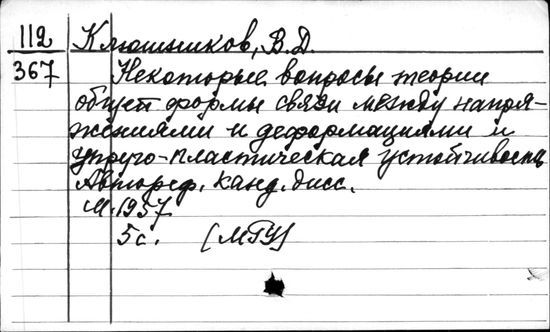 112 Клюшников, В.Д.
367 Некоторые вопросы теории
общей формы связи между напря-
жениями и деформациями и
упруго-пластическая устойчивость
Автореф. канд. дисс.
М. 1957
5 с. [МГУ]